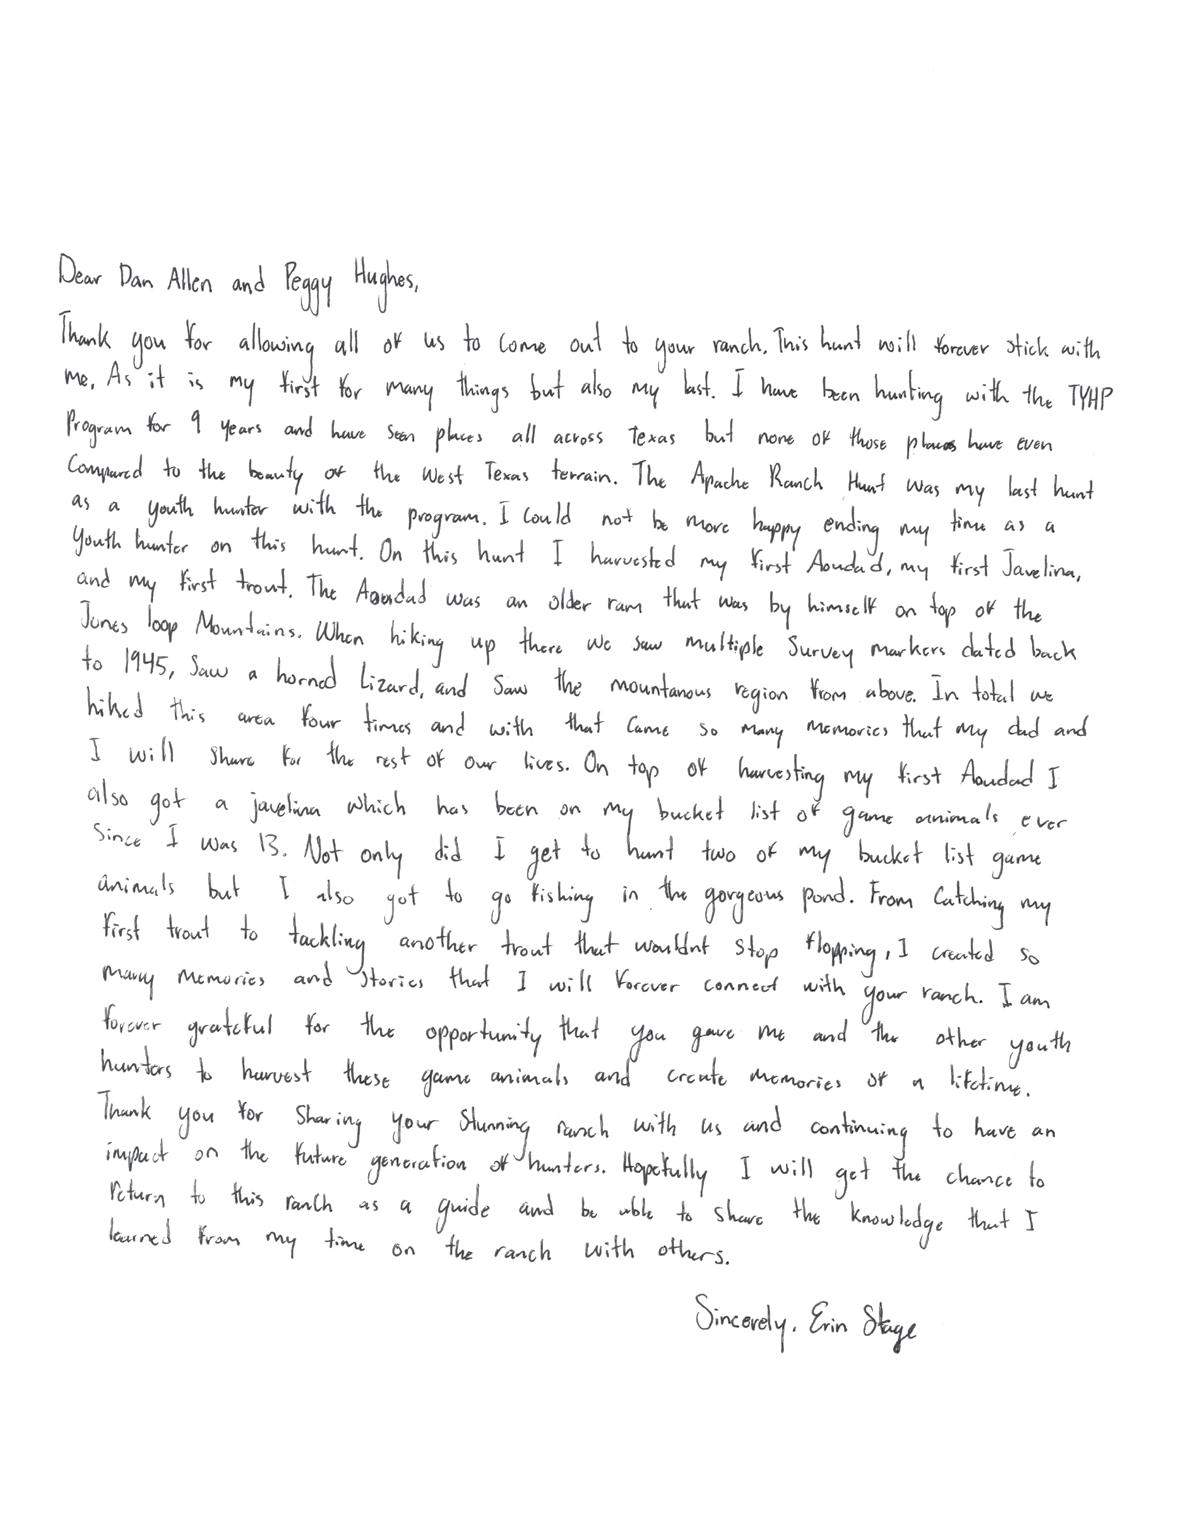 Dear Dan Allen and Peggy Hughes,
Thank you for allowing all of us to come out to your ranch. This hunt will forever stick with
me. As it is my first for many things but also my last. I have been hunting with the TYHP
Program for 9 years and have seen places all across Texas but none of those places have even
Compared to the beauty of the West Texas terrain. The Apache Ranch Hunt was my last hunt
as a youth hunter with the program. I could not be more happy ending my time as a
Youth hunter on this hunt. On this hunt I harvested my first Aoudad, my first Javelina,
and my first trout. The Aoudad was an older ram that was by himself on top of the
Jones loop Mountains. When hiking up there we saw multiple Survey markers dated back
to 1945, Saw a horned Lizard, and Saw the mountanous region from above. In total we
hiked this area four times and with that came so many memories that my dad and
I will share for the rest of our lives. On top of harvesting my first Aoudad I
also got a javelina which has been on my bucket list of game animals ever
Since I was 13. Not only did I get to hunt two of my bucket list game
animals but I also got to go fishing in the gorgeous pond. From Catching my
first trout to tackling another trout that wouldnt stop flopping, I created so
many memories and stories that I will forever connect with your ranch. I am
forever grateful for the opportunity that you gave me and the other youth
hunters to harvest these game animals and create memories of a lifetime.
Thank you for Sharing your Stunning ranch with us and continuing to have an
impact on the future generation of hunters. Hopefully I will get the chance to
return to this ranch as a guide and be able to share the knowledge that I
learned from my time on the ranch with others.
Sincerely, Erin Stage